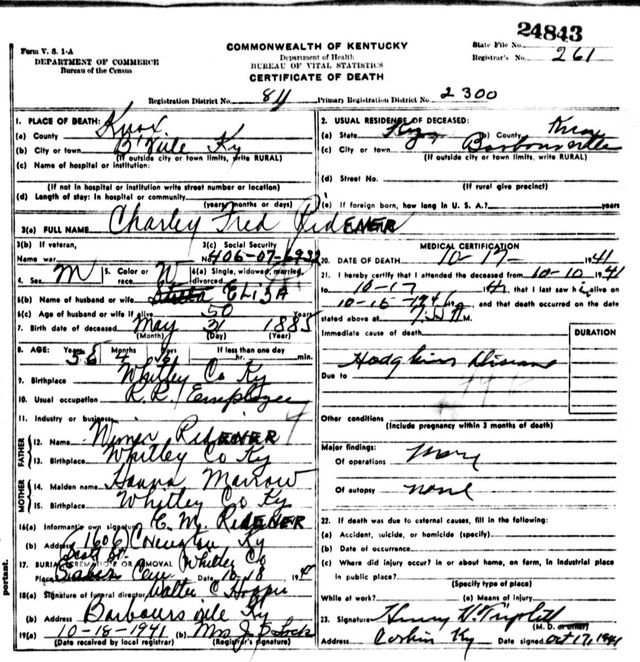 24843
Form V. S. 1-A
COMMONWEALTH OF KENTUCKY
State File No.
DEPARTMENT OF COMMERCE
Bureau of the Census
Department of Health
BUREAU OF VITAL STATISTICS
CERTIFICATE OF DEATH
Registrar's No. 261
Registration District No. 84 Primary Registration District No. 2300
1. PLACE OF DEATH:
(a) County Knox
(b) City or town B'Ville Ky
(If outside city or town limits, write RURAL)
(c) Name of hospital or institution:
(If not in hospital or institution write street number or location)
(d) Length of stay: In hospital or community
(years, months or days)
2. USUAL RESIDENCE OF DECEASED:
(a) State Ky (b) County Knox
(c) City or town Barboursville
(If outside city or town limits, write RURAL)
(d) Street No.
(If rural give precinct)
(e) If foreign born, how long in U. S. A.? years
3(a) FULL NAME Charley Fred RIDENER
3(b) If veteran,
Name war
3(c) Social Security
No. 406-07-6932
4. Sex M
5. Color or race W
6(a) Single, widowed, married, divorced
6(b) Name of husband or wife ELIZA
6(c) Age of husband or wife if alive 50 years
7. Birth date of deceased May 31 1885
(Month) (Day) (Year)
8. AGE: Years 56 Months 4 Days
If less than one day
hr. min.
9. Birthplace Whitley Co Ky
10. Usual occupation R.R. Employee
11. Industry or business
FATHER
12. Name RIDENER
13. Birthplace Whitley Co Ky
MOTHER
14. Maiden name Marrow
15. Birthplace Whitley Co Ky
16(a) Informant's own signature E. M. RIDENER
(b) Address 1606 Ky
17. BURIAL, CREMATION OR REMOVAL Whitley Co
Place Cem Date 10-18 194
18(a) Signature of funeral director Walter C Hopper
(b) Address Barboursville Ky
19(a) 10-18-1941 (b) Mrs J
(Date received by local registrar) (Registrar's signature)
MEDICAL CERTIFICATION
20. DATE OF DEATH 10-17- 1941
21. I hereby certify that I attended the deceased from 10-10 1941
to 10-17 1941, that I last saw him alive on
10-16-194, and that death occurred on the date
stated above at M.
Immediate cause of death
DURATION
Hodgkins Disease
Due to
Other conditions
(Include pregnancy within 3 months of death)
Major findings:
Of operations
Of autopsy none
22. If death was due to external causes, fill in the following:
(a) Accident, suicide, or homicide (specify)
(b) Date of occurrence
(c) Where did injury occur? in or about home, on farm, in industrial place
in public place?
(Specify type of place)
While at work? (e) Means of injury
23. Signature Henry
(M. D. or other)
Address Corbin Ky Date signed Oct 17, 1941
portant.